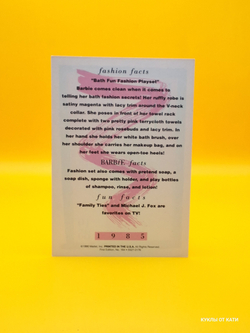 fashion facts
"Bath Fun Fashion Playset"
Barbie comes clean when it comes to
telling her bath fashion secrets! Her ruffly robe is
satiny magenta with lacy trim around the V-neck
collar. She poses in front of her towel rack
complete with two pretty pink terrycloth towels
decorated with pink rosebuds and lacy trim. In
her hand she holds her white bath brush, over
her shoulder she carries her makeup bag, and on
her feet she wears open-toe heels!
BARBIE facts
Fashion set also comes with pretend soap, a
soap dish, sponge with holder, and play bottles
of shampoo, rinse, and lotion!
fun facts
"Family Ties" and Michael J. Fox are
favorites on TV!
1985
PRINTED IN THE U.S.A. All Rights Reserved